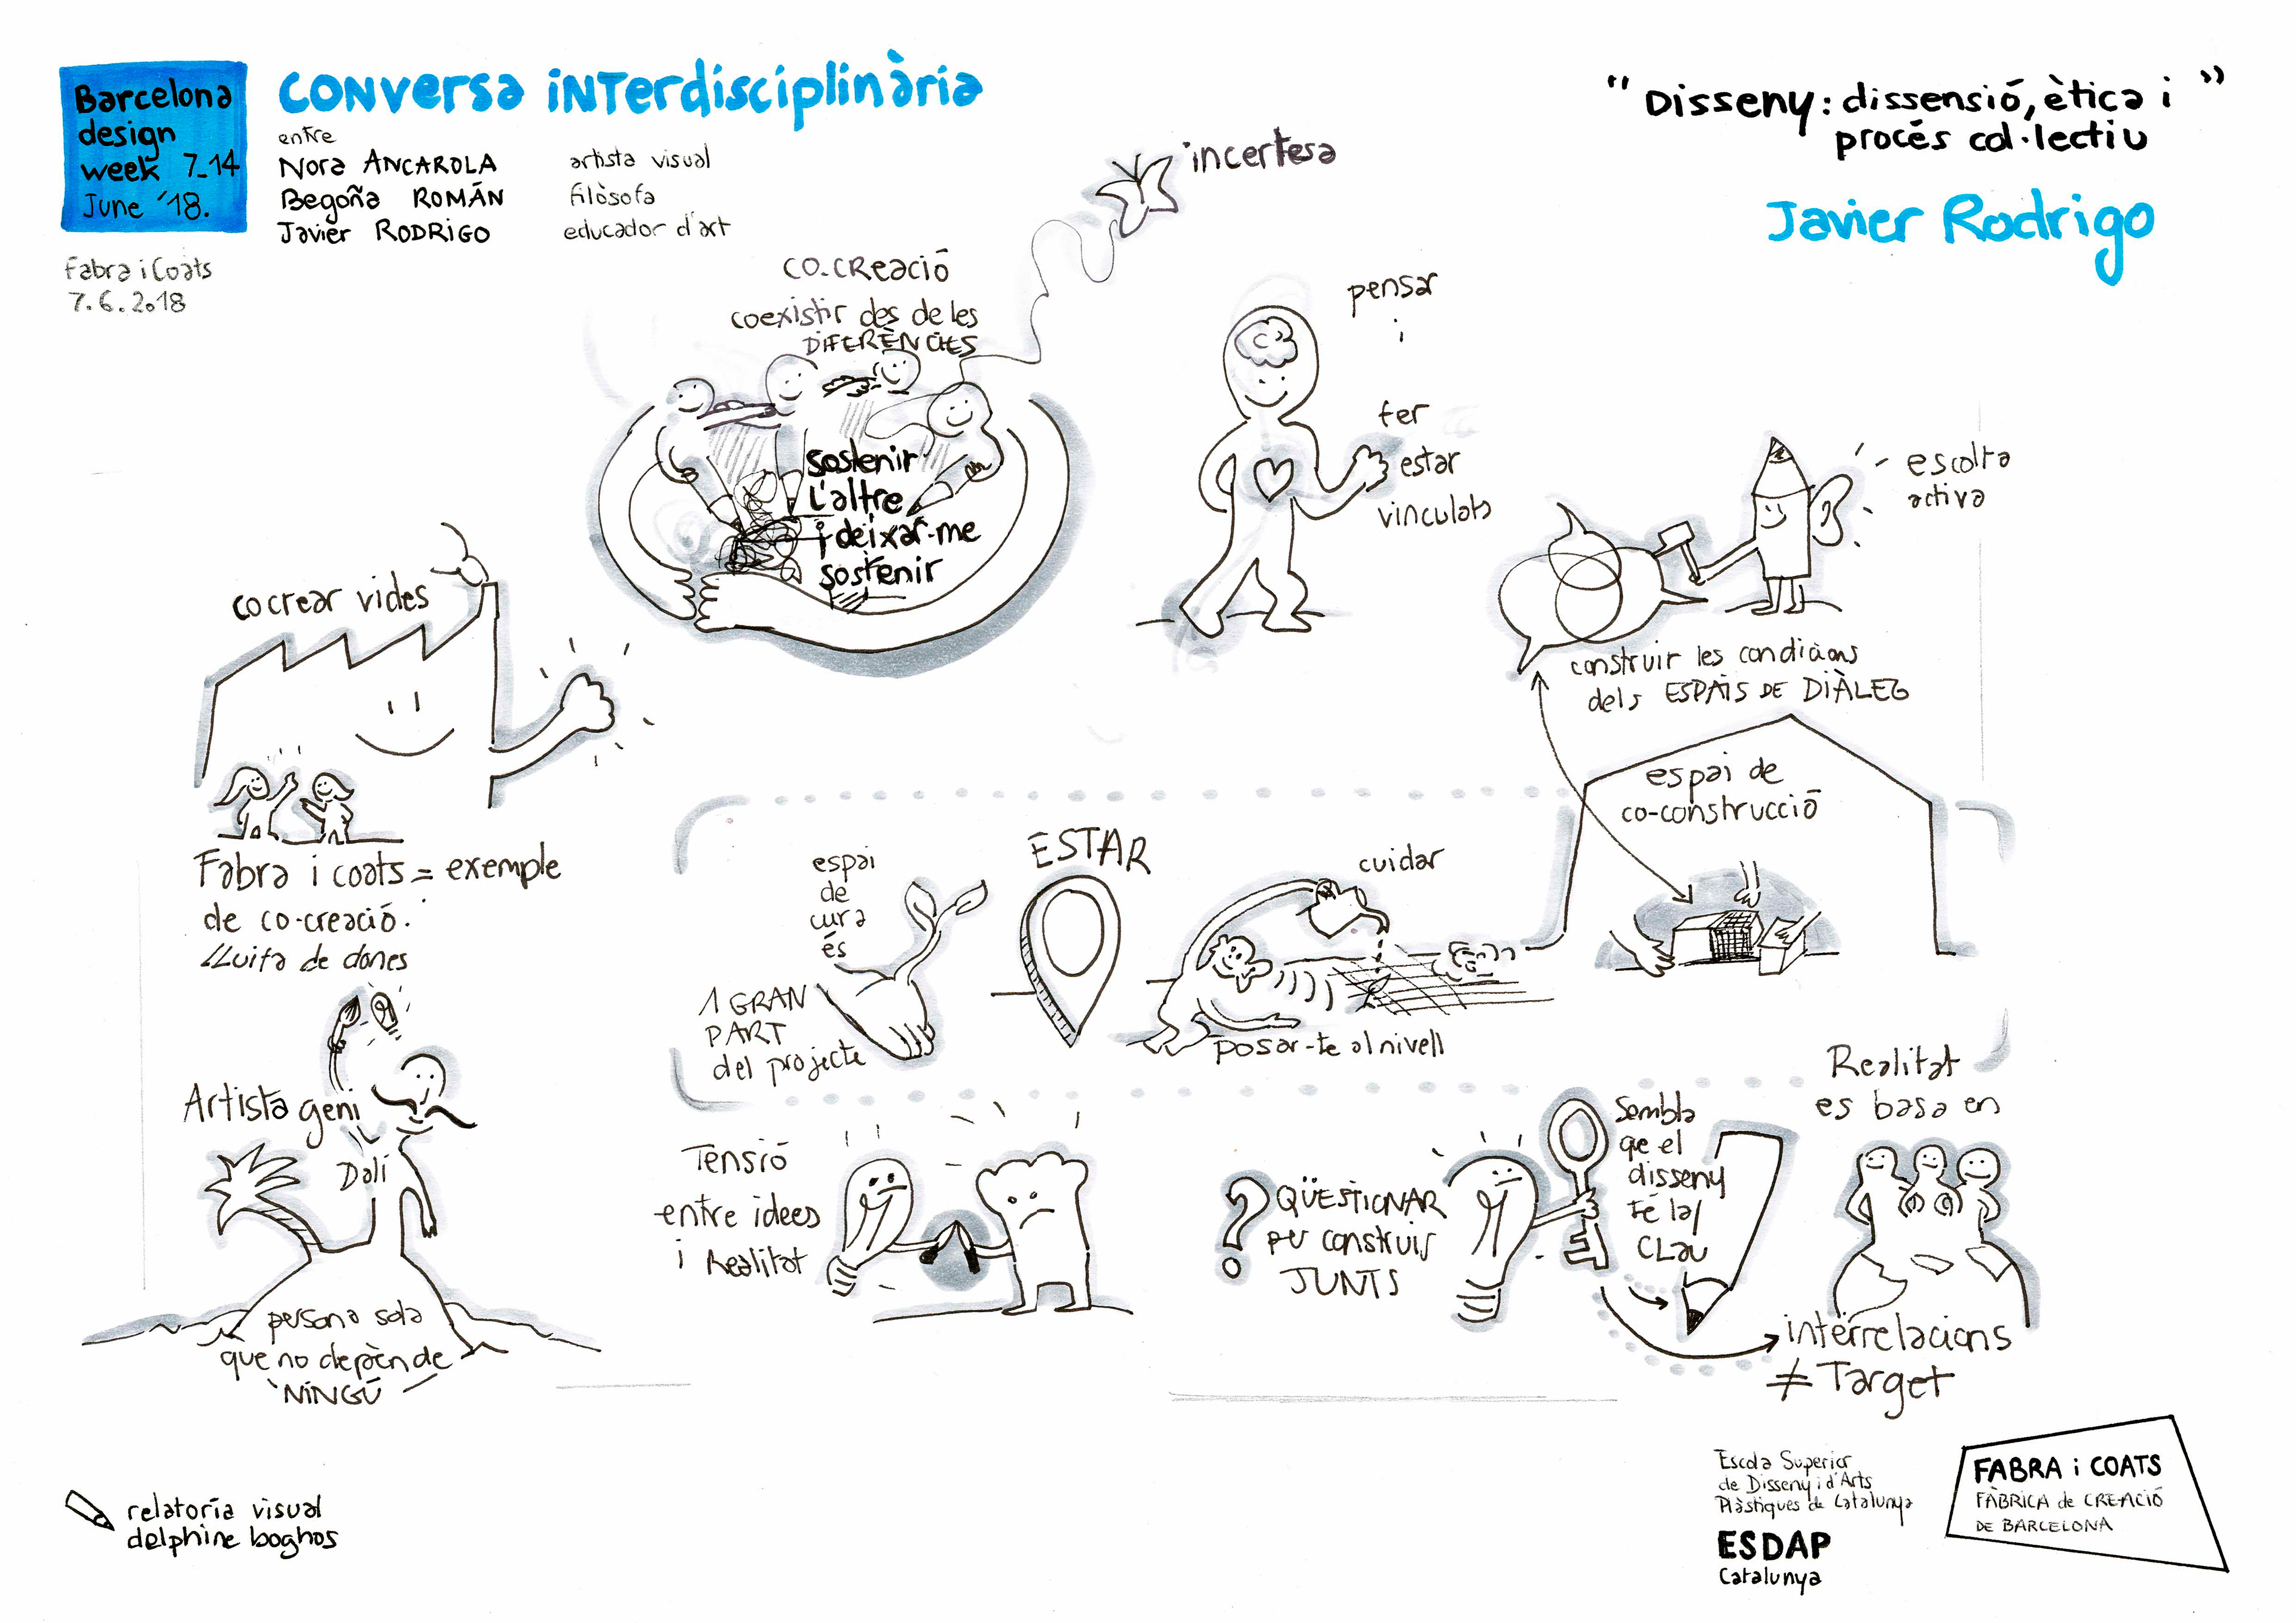 Barcelona
design
week 7_14
June '18.
Fabra i Coats
7.6.2018
CONVERSA INTERDISCIPLINÀRIA
entre
Nora ANCAROLA artista visual
Begoña ROMÁN filòsofa
Javier RODRIGO educador d'art
"Disseny: dissensió, ètica i"
procés col·lectiu
Javier Rodrigo
incertesa
CO-CREACIÓ
coexistir des de les
DIFERÈNCIES
sostenir
l'altre
i deixar-me
sostenir
pensar
i
fer
estar
vinculats
escolta
activa
construir les condicions
dels ESPAIS DE DIÀLEG
espai de
co-construcció
cocrear vides
Fabra i coats = exemple
de co-creació.
LLuita de dones
espai
de
cura
és
1 GRAN
PART
del projecte
ESTAR
cuidar
posar-te al nivell
Artista geni
Dalí
persona sola
que no depèn de
NINGÚ
Tensió
entre idees
i Realitat
? QÜESTIONAR
per construir
JUNTS
Sembla
que el
disseny
té la
CLAU
Realitat
es basa en
interrelacions
≠ Target
relatoría visual
delphine boghos
Escola Superior
de Disseny i d'Arts
Plàstiques de Catalunya
ESDAP
Catalunya
FABRA i COATS
FÀBRICA de CREACIÓ
DE BARCELONA